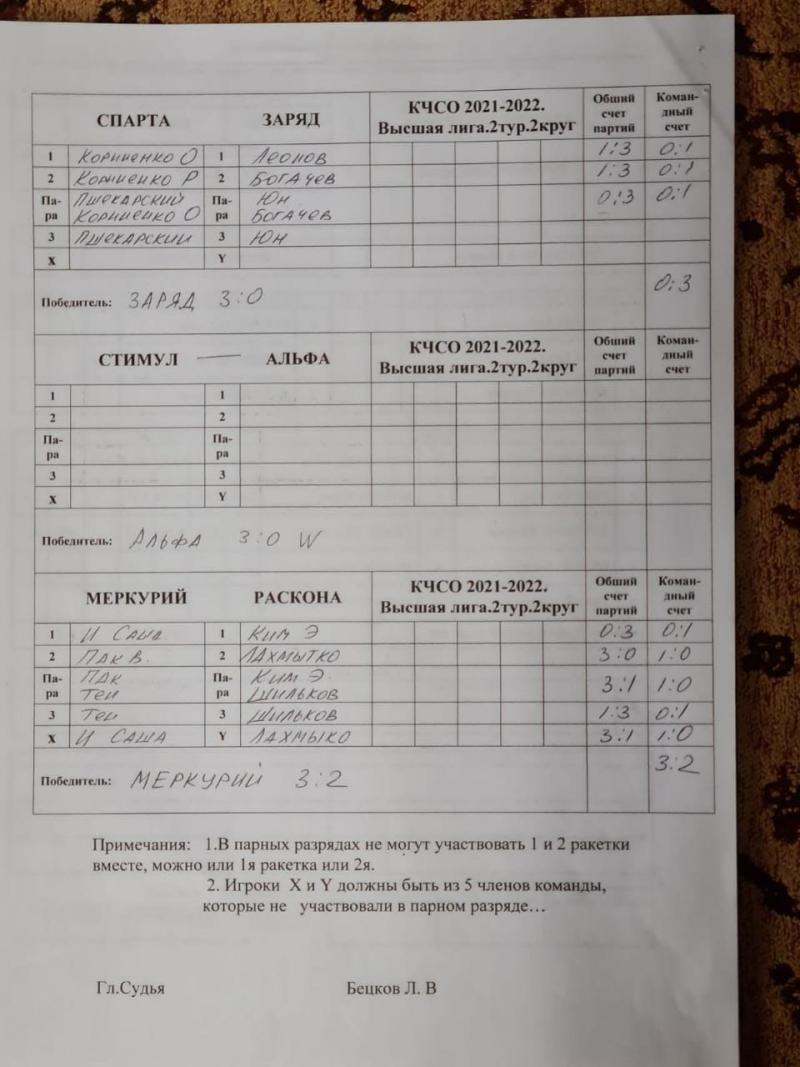 СПАРТА ЗАРЯД КЧСО 2021-2022. Высшая лига.2тур.2круг Обший счет партий Коман-дный счет
1 Корниенко О 1 Леонов 1:3 0:1
2 Корниенко Р 2 Богачев 1:3 0:1
Па- Пшекарский Па- Юн 0:3 0:1
ра Корниенко О ра Богачев
3 Пшекарский 3 Юн
X Y
Победитель: ЗАРЯД 3:0 0:3
СТИМУЛ — АЛЬФА КЧСО 2021-2022. Высшая лига.2тур.2круг Обший счет партий Коман-дный счет
1 1
2 2
Па- Па-
ра ра
3 3
X Y
Победитель: Альфа 3:0 W
МЕРКУРИЙ РАСКОНА КЧСО 2021-2022. Высшая лига.2тур.2круг Обший счет партий Коман-дный счет
1 И Саша 1 Ким Э 0:3 0:1
2 Пак В. 2 Лахмытко 3:0 1:0
Па- Пак Па- Ким Э 3:1 1:0
ра Тен ра Шильков
3 Тен 3 Шильков 1:3 0:1
X И САША Y Лахмыко 3:1 1:0
Победитель: МЕРКУРИЙ 3:2 3:2
Примечания: 1.В парных разрядах не могут участвовать 1 и 2 ракетки
вместе, можно или 1я ракетка или 2я.
2. Игроки X и Y должны быть из 5 членов команды,
которые не участвовали в парном разряде…
Гл.Судья Бецков Л. В